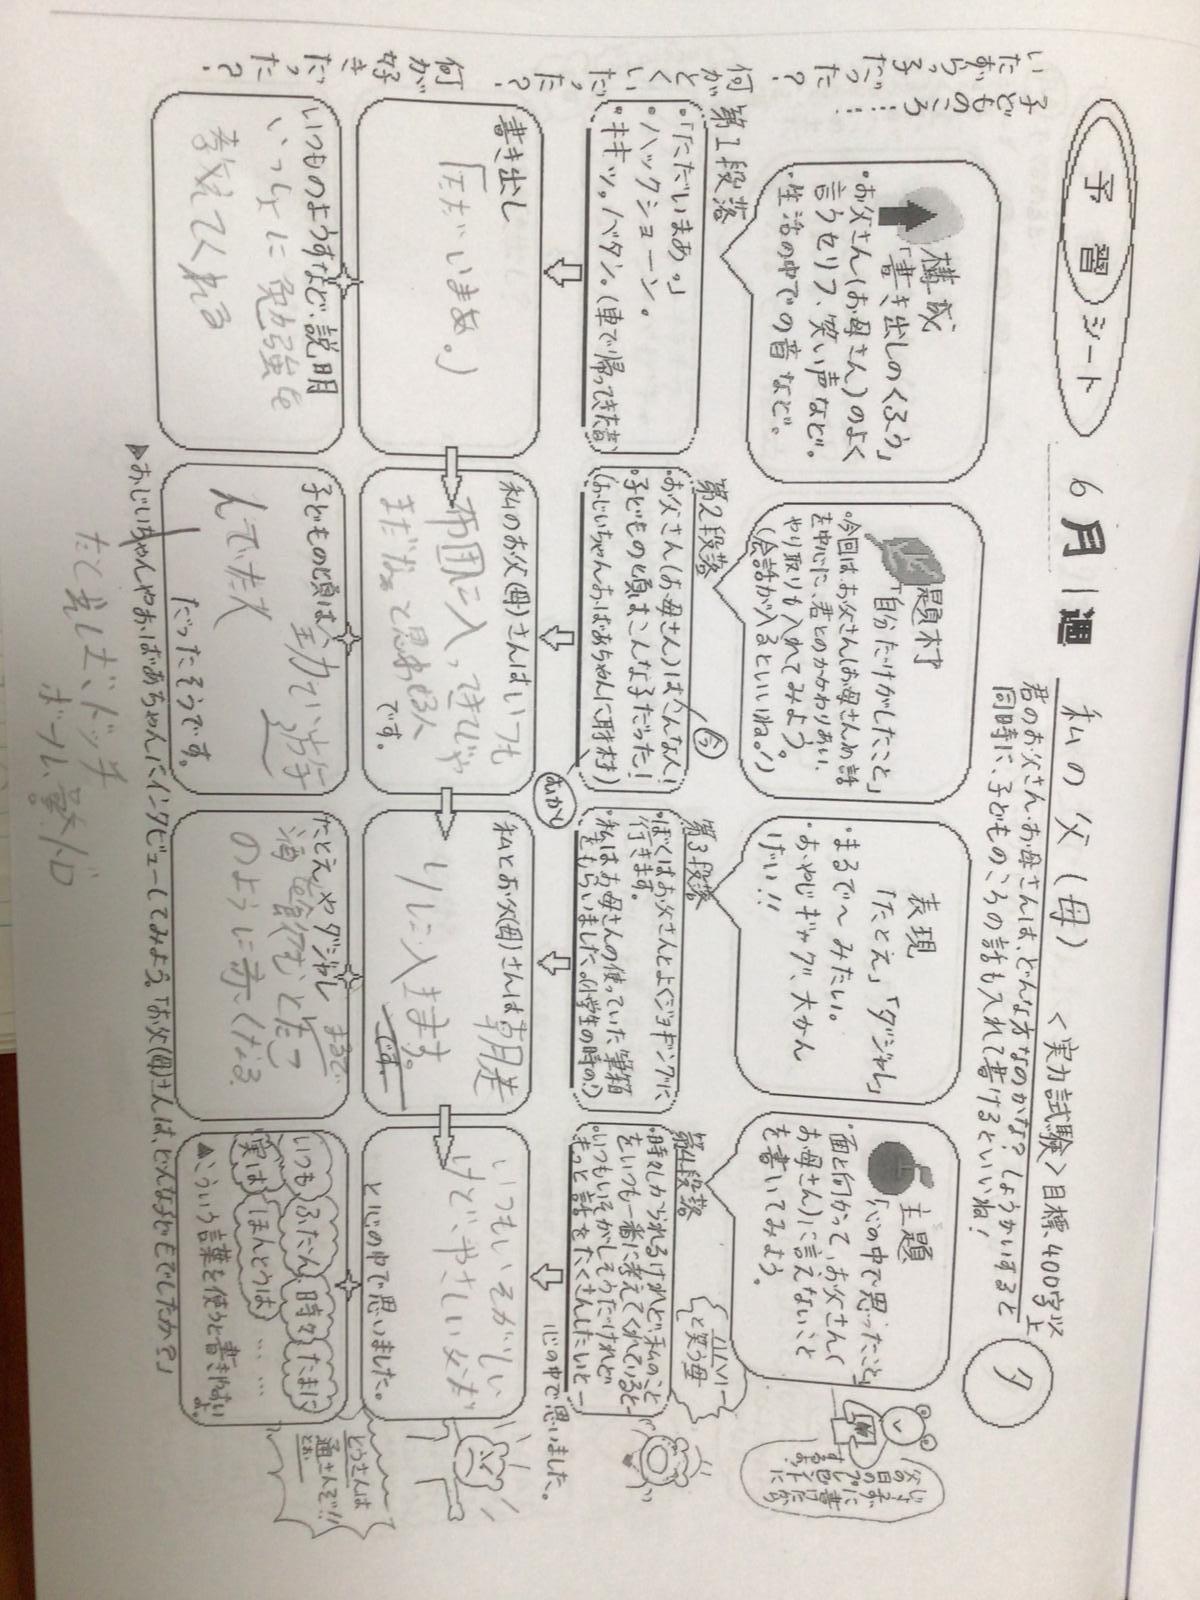 予習シート
6月1週
私の父(母)
<実力試験>目標400字以上
タ
君のお父さん・お母さんは、どんな方なのかな?しょうかいすると
同時に、子どものころの話も入れて書けるといいね!
構成
「書き出しのくふう」
・お父さん(お母さん)のよく
言うセリフ、笑い声など。
・生活の中での音など。
題材
「自分だけがしたこと」
・今回はお父さん(お母さん)の話
を中心に、君とのかかわりあい、
やり取りも入れてみよう。
(会話が入るといいね!)
表現
「たとえ」「ダジャレ」
・まるで〜みたい。
・おやじギャグ、大かん
げい!!
主題
「心の中で思ったこと」
・面と向かって、お父さん(
お母さん)に言えないこと
を書いてみよう。
子どものころ……
いたずらっ子
だった?
何がとくい
だった?
何が好き
だった?
第1段落
・「ただいまあ。」
・ハックショーン。
・キキッ。バタン。(車で帰ってきた音)
第2段落
・お父さん(お母さん)はこんな人!
・子どもの頃はこんな子だった!
(おじいちゃんおばあちゃんに取材)
今
むかし
第3段落
・ぼくはお父さんとよくジョギングに
行きます。
・私はお母さんの使っていた筆箱
をもらいました。(小学生の時の!)
第4段落
・時々しかられるけれど、私のこと
をいつも一番に考えてくれていると…
・いつもいそがしそうだけれど
もっと話をたくさんしたいと…
心の中で思いました。
と笑う母
書き出し
「ただいまぁ。」
私のお父(母)さんはいつも
布団に入ってきてじゃ
まだなぁと思われる人
です。
私とお父(母)さんは朝走
りに入ます。
です。
いつもいそがしい
けど、やさしい父だ
と心の中で思いました。
いつものようすなど、説明
いっしょに勉強を
教えてくれる
子どもの頃は
全力で遊
んでた人
だったそうです。
たとえやダジャレ
まるで
のように赤くなる
いつも ふだん 時々 たまに
実は ほんとうは ……
▲こういう言葉を使うと書きやすい
よ。
とうさんは
通さんぞ!!
とお
▲おじいちゃんやおばあちゃんにインタビューしてみよう。「お父(母)さんは、どんな子どもでしたか?」
たとえば、ドッチ
ボール、